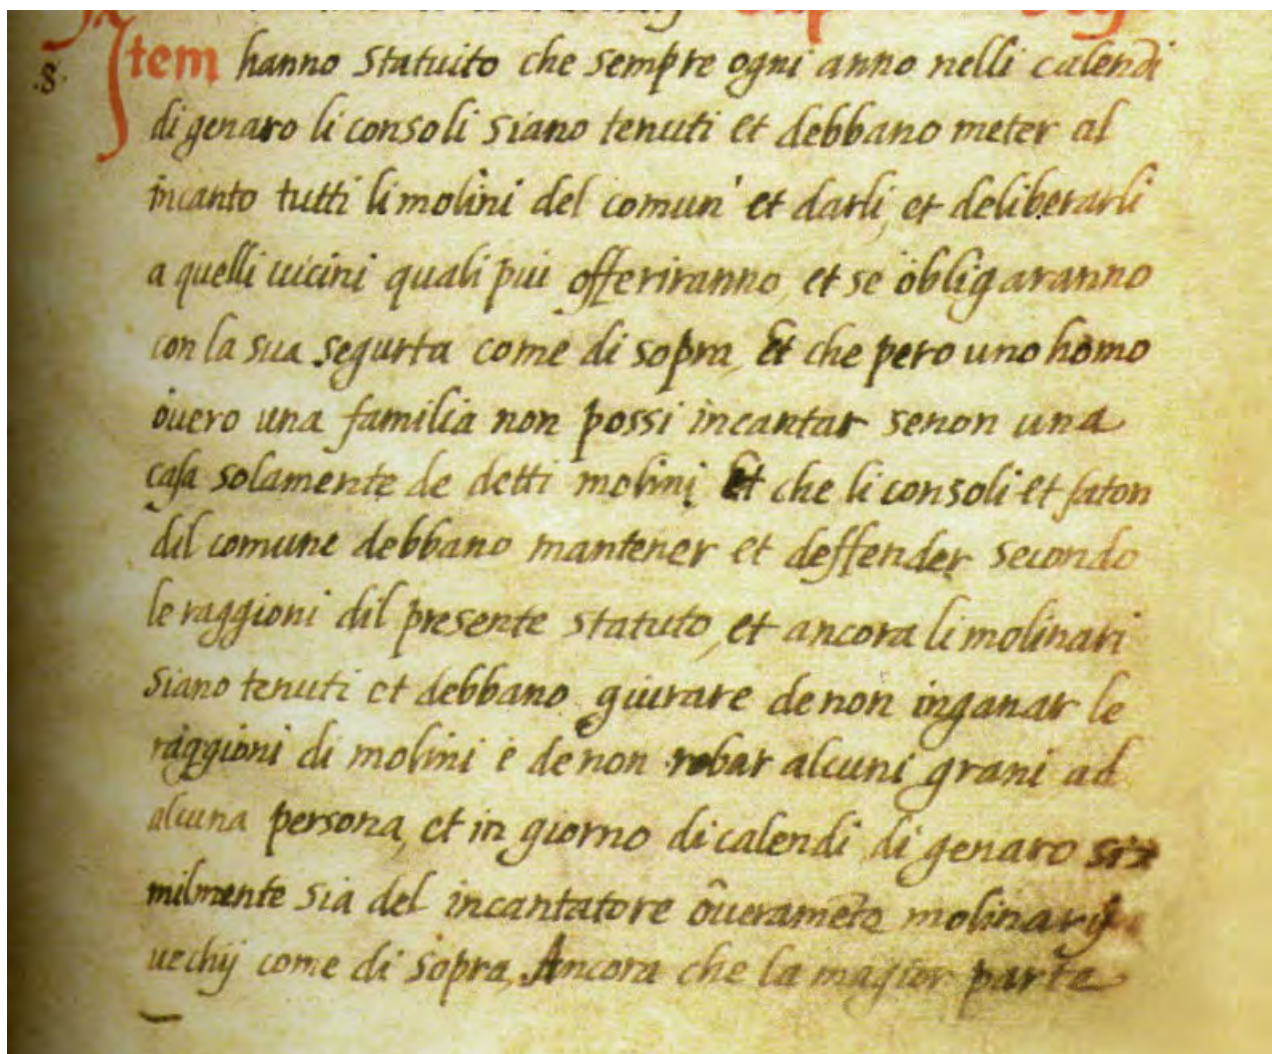 .8. Item hanno statuito che sempre ogni anno nelli calendi
di genaro li consoli siano tenuti et debbano meter al
incanto tutti li molini del comun' et darli, et deliberarli
a quelli uicini quali piu offeriranno, et se obligaranno
con la sua segurta come di sopra, Et che pero uno homo
ouero una familia non possi incantar senon una
casa solamente de detti molini Et che li consoli et fatori
dil comune debbano mantener et deffender secondo
le raggioni dil presente statuto, et ancora li molinari
siano tenuti et debbano giurare de non inganar le
raggioni di molini e de non robar alcuni grani ad
alcuna persona, et in giorno di calendi di genaro si
milmente sia del incantatore ôuerameto molinarij
uechij come di sopra, Ancora che la magior parte